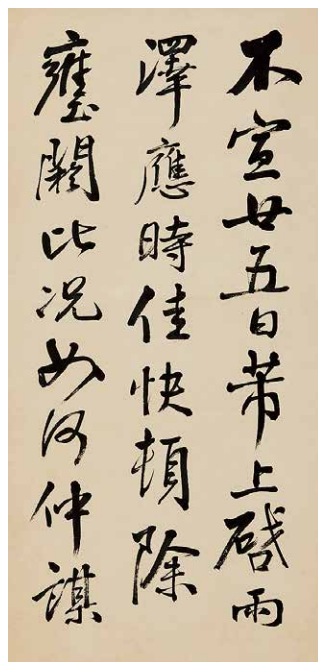 不宣廿五日芾上啓雨
澤應時佳快頓除
壅閼此况如何仲謀